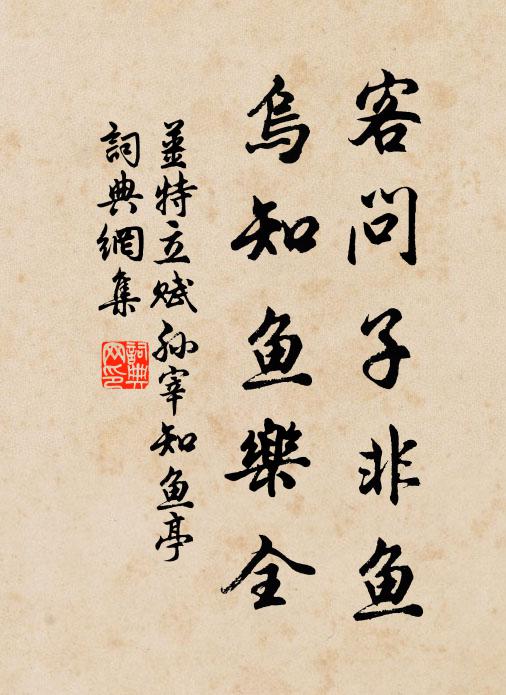 客问子非鱼
烏知鱼樂全
薑特立赋孙宰知鱼亭
詞典網集
詞典
网印